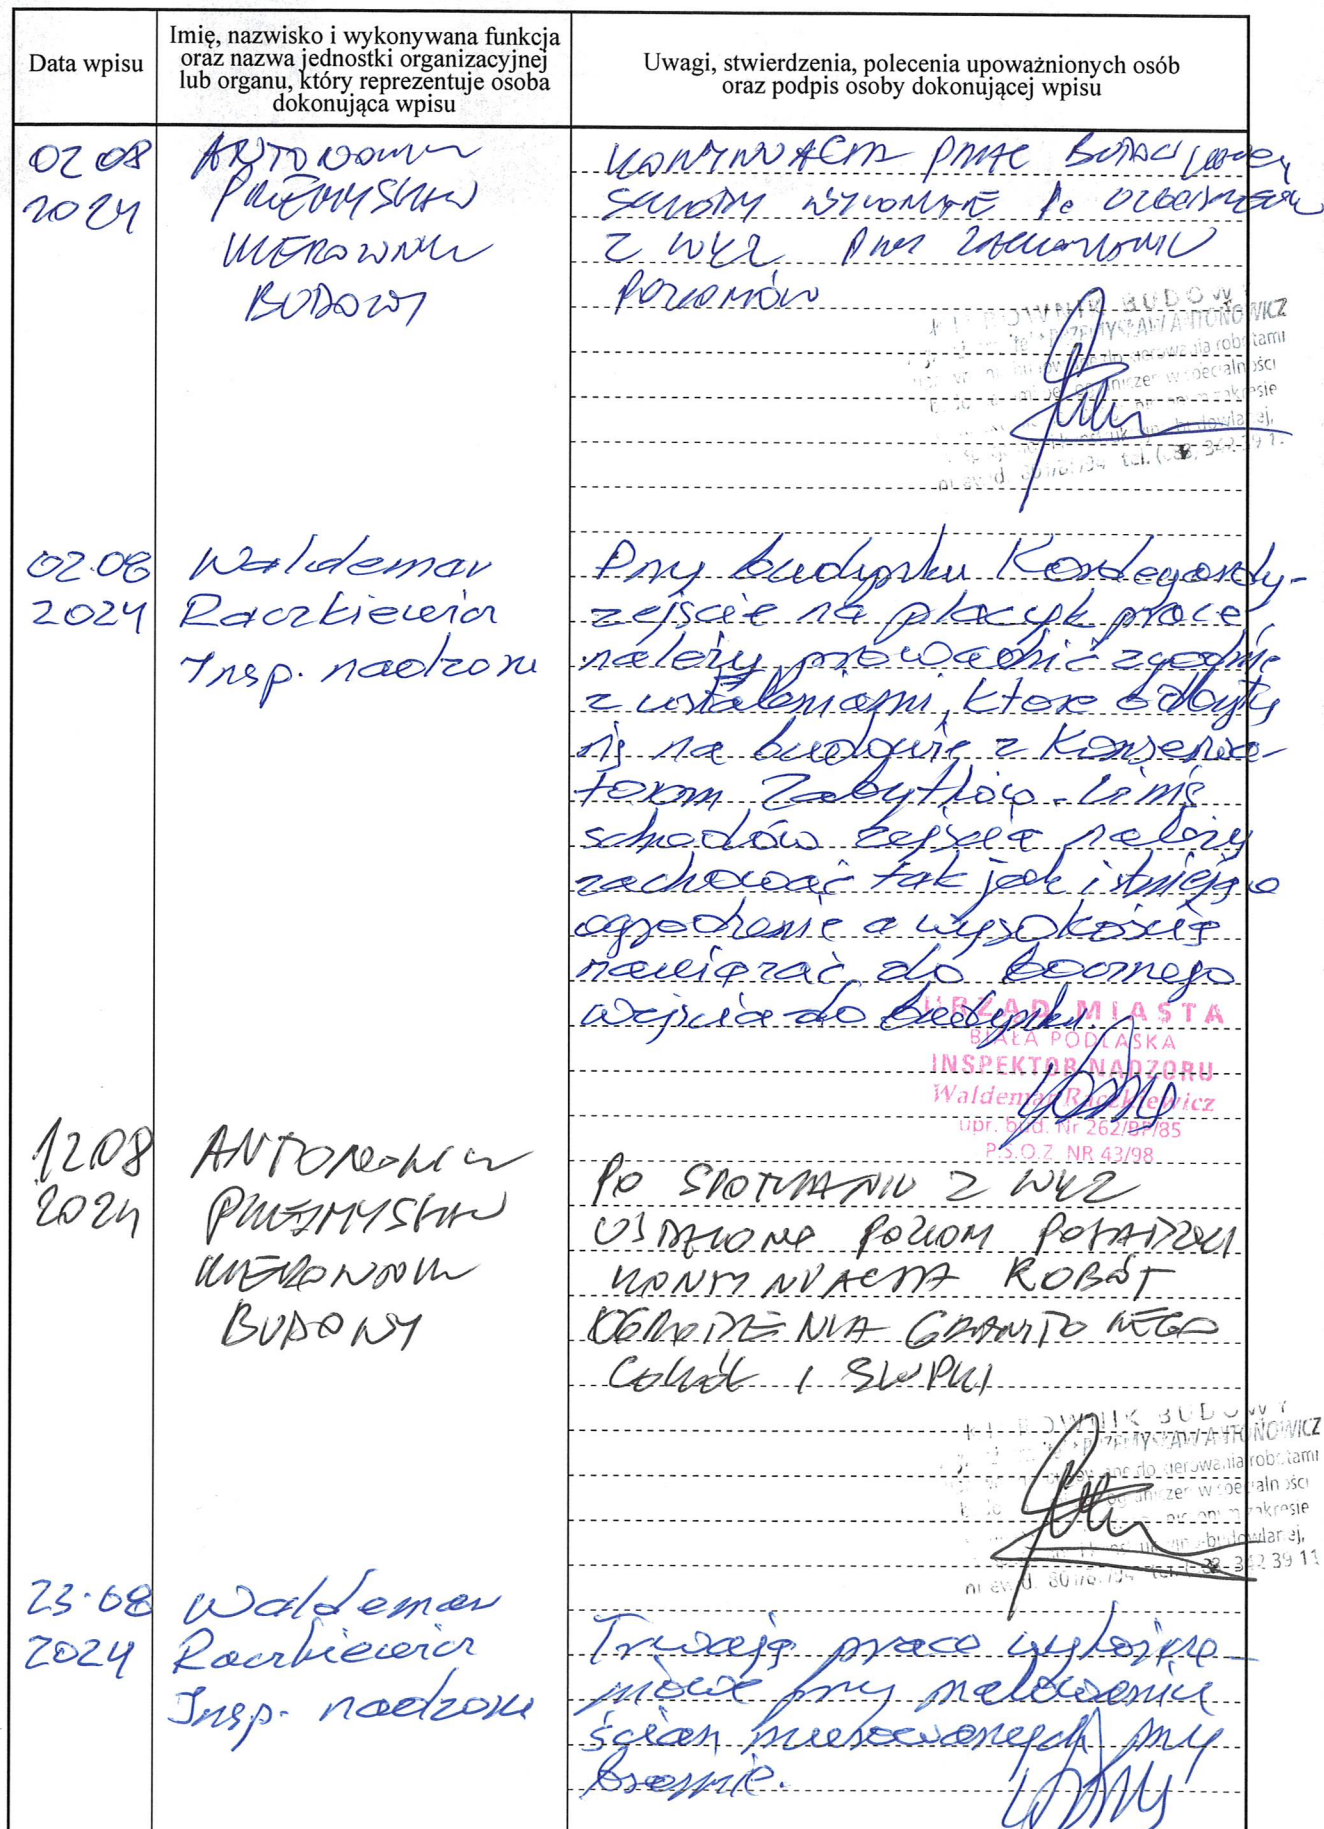 Data wpisu
Imię, nazwisko i wykonywana funkcja
oraz nazwa jednostki organizacyjnej
lub organu, który reprezentuje osoba
dokonująca wpisu
Uwagi, stwierdzenia, polecenia upoważnionych osób
oraz podpis osoby dokonującej wpisu
02 08
2024
ANTONOWICZ
PRZEMYSŁAW
KIEROWNIK
BUDOWY
KONTYNUACJA PRAC
SCHODY WYKONANE PO
Z WKZ PRZY ZACHOWANIU
POZIOMÓW
KIEROWNIK BUDOWY
PRZEMYSŁAW ANTONOWICZ
do kierowania robotami
ograniczeń w specjalności
zakresie
budowlanej,
02.08
2024
Waldemar
Raczkiewicz
Insp. nadzoru
Przy budynku Kordegardy-
zejście na placyk prace
należy prowadzić zgodnie
z ustaleniami, które odbyły
się na budowie z Konserwa-
torem Zabytków. Linię
schodów zejścia należy
zachować tak jak istnieją o
ogrodzenie a wysokością
nawiązać do bocznego
wejścia do budynku.
URZĄD MIASTA
BIAŁA PODLASKA
INSPEKTOR NADZORU
Waldemar Raczkiewicz
upr. bud. Nr 262/BP/85
P.S.O.Z. NR 43/98
12.08
2024
ANTONOWICZ
PRZEMYSŁAW
KIEROWNIK
BUDOWY
PO SPOTKANIU Z WKZ
USTALONO POZIOM POSADZKI
KONTYNUACJA ROBÓT
OGRODZENIA GRANITOWEGO
COKÓŁ I SŁUPKI
KIEROWNIK BUDOWY
PRZEMYSŁAW ANTONOWICZ
do kierowania robotami
ograniczeń w specjalności
zakresie
budowlanej,
342 39 11
23.08
2024
Waldemar
Raczkiewicz
Insp. nadzoru
Trwają prace wykończe-
niowe przy malowaniu
ścian murowanych przy
bramie.